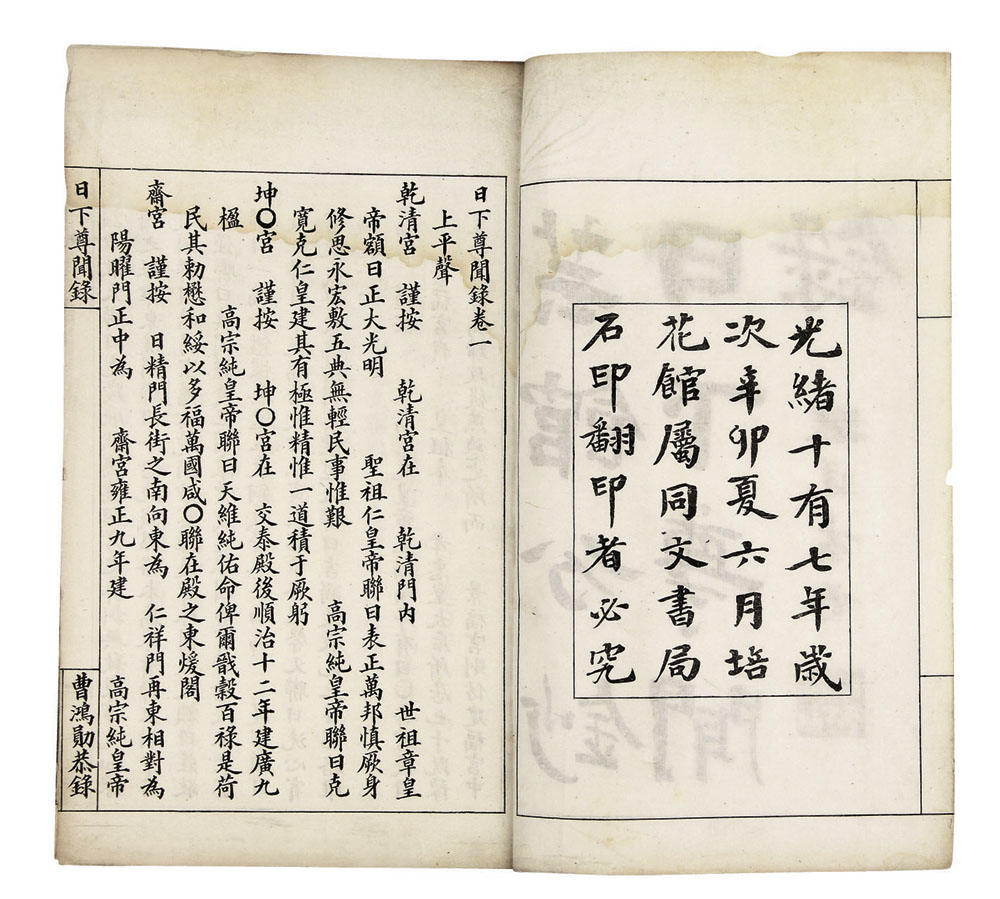 光緒十有七年歲
次辛卯夏六月培
花館屬同文書局
石印翻印者必究
日下尊聞錄卷一
上平聲
乾清宮 謹按 乾清宮在 乾清門內 世祖章皇
帝額曰正大光明 聖祖仁皇帝聯曰表正萬邦慎厥身
修思永宏敷五典無輕民事惟艱 高宗純皇帝聯曰克
寬克仁皇建其有極惟精惟一道積于厥躬
坤〇宮 謹按 坤〇宮在 交泰殿後順治十二年建廣九
楹 高宗純皇帝聯曰天維純佑命俾爾戩穀百祿是荷
民其勅懋和綏以多福萬國咸〇聯在殿之東煖閣
齋宮 謹按 日精門長街之南向東為 仁祥門再東相對為
陽曜門正中為 齋宮雍正九年建 高宗純皇帝
日下尊聞錄 曹鴻勛恭錄